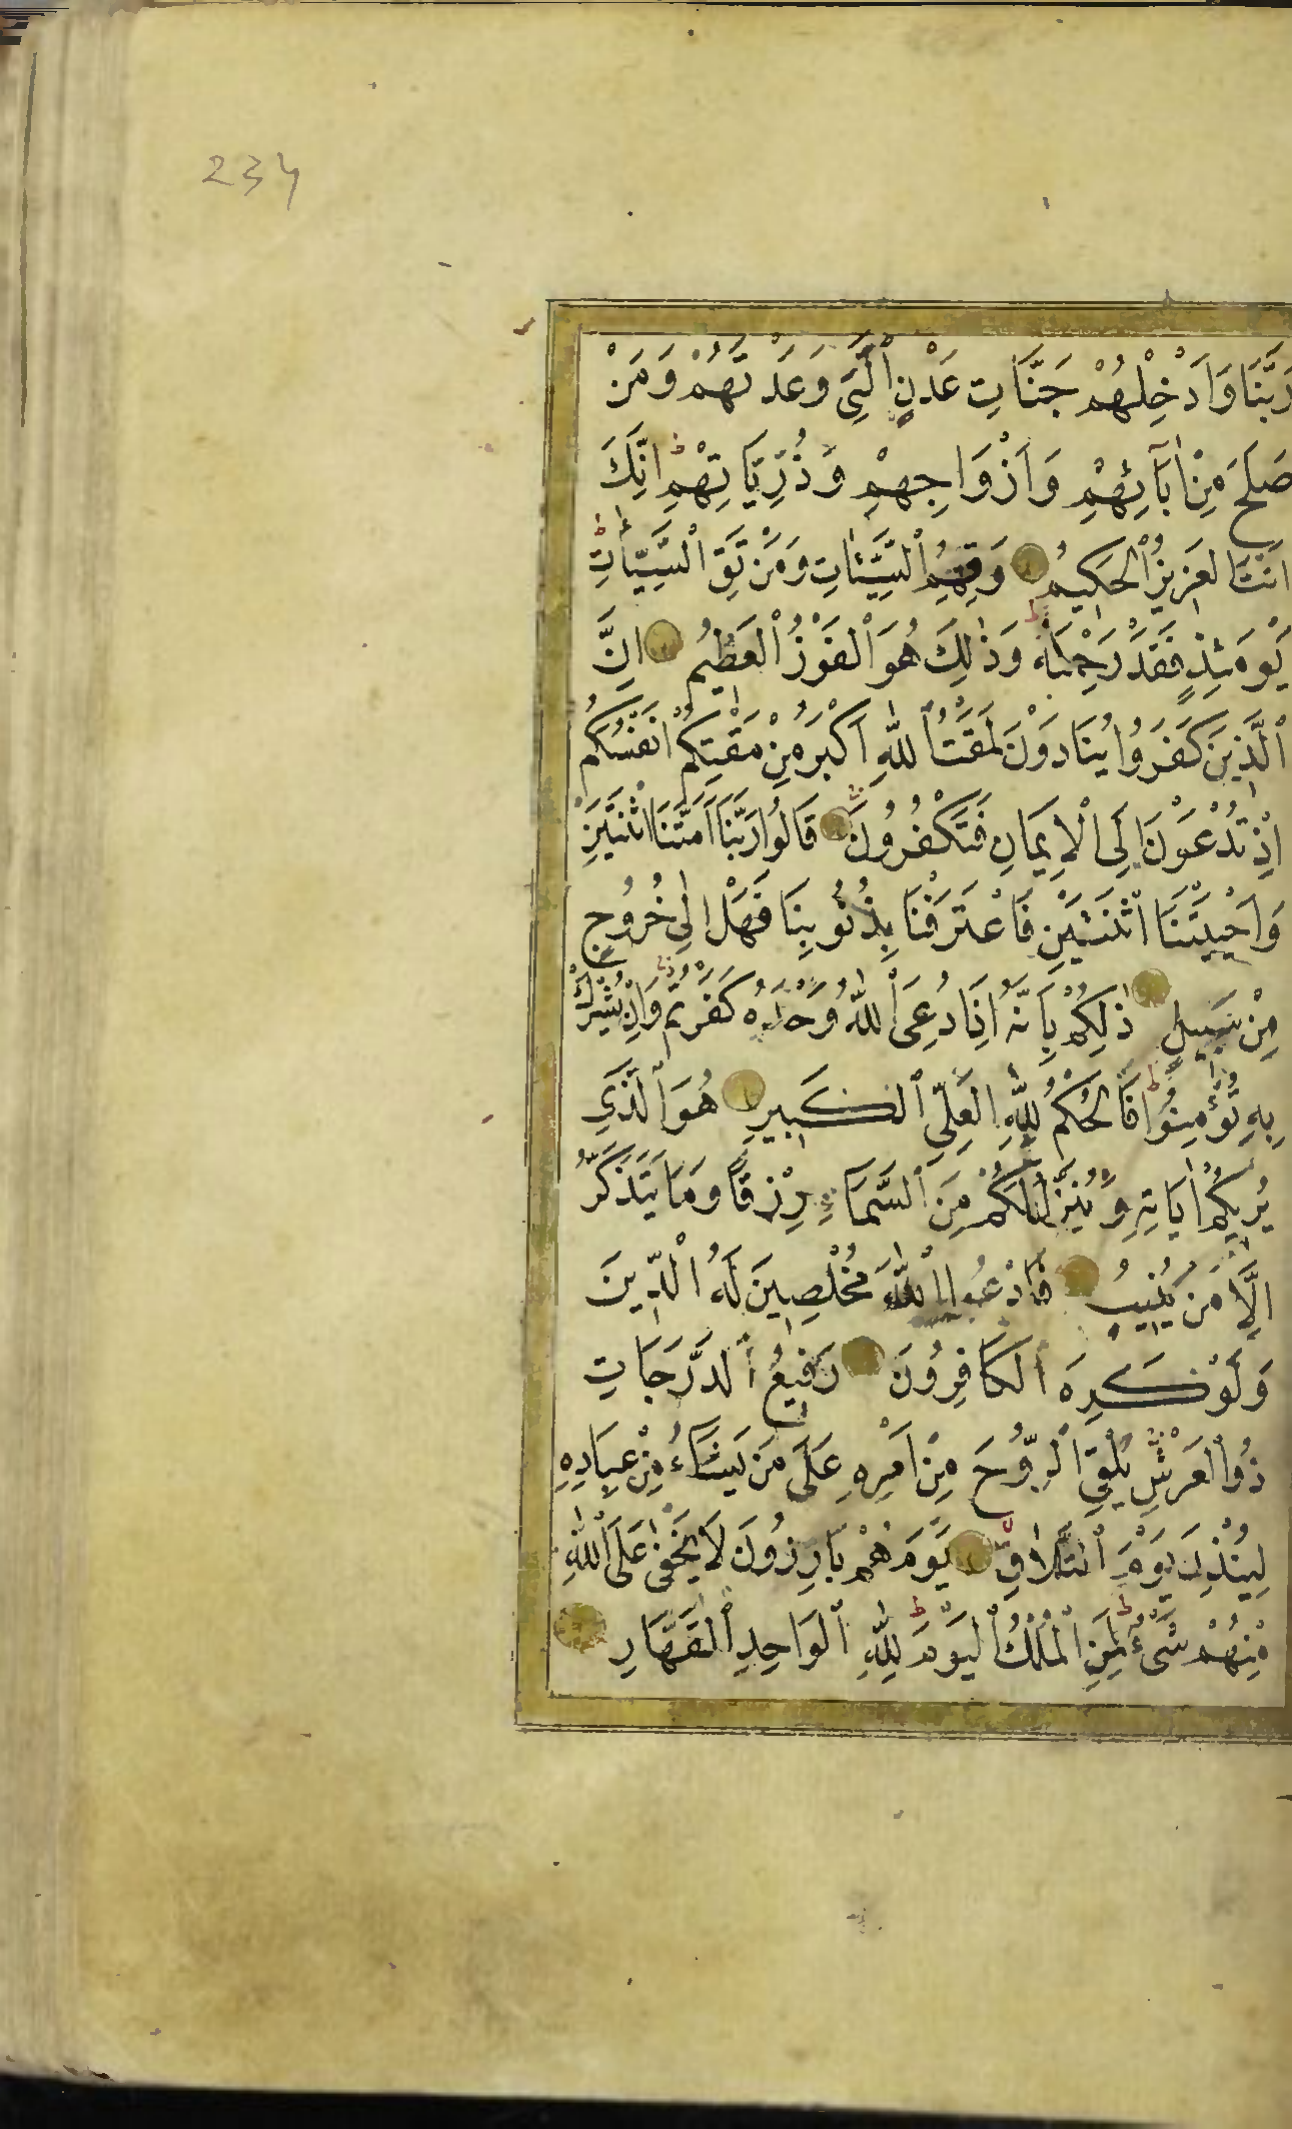 234
رَبَّنَا وَاَدْخِلْهُمْ جَنَّاتِ عَدْنٍ ٱلَّتِى وَعَدْتَهُمْ وَمَنْ
صَلَحَ مِنْ اٰبَآئِهِمْ وَاَزْوَاجِهِمْ وَذُرِّيَّاتِهِمْ ط اِنَّكَ
اَنْتَ ٱلعَزِيزُ ٱلْحَكِيمُ وَقِهِمُ ٱلسَّيِّئَاتِ وَمَنْ تَقِ ٱلسَّيِّئَاتِ ط
يَوْمَئِذٍ فَقَدْ رَحِمْتَهُ ط وَذٰلِكَ هُوَ ٱلْفَوْزُ ٱلْعَظِيمُ اِنَّ
ٱلَّذِينَ كَفَرُوا يُنَادَوْنَ لَمَقْتُ ٱللّٰهِ اَكْبَرُ مِنْ مَقْتِكُمْ اَنْفُسَكُمْ
اِذْ تُدْعَوْنَ اِلَى ٱلْاِيمَانِ فَتَكْفُرُونَ قَالُوا رَبَّنَا اَمَتَّنَا اثْنَتَيْنِ
وَاَحْيَيْتَنَا اثْنَتَيْنِ فَاعْتَرَفْنَا بِذُنُوبِنَا فَهَلْ اِلٰى خُرُوجٍ
مِنْ سَبِيلٍ ذٰلِكُمْ بِاَنَّهُ اِذَا دُعِىَ ٱللّٰهُ وَحْدَهُ كَفَرْتُمْ وَاِنْ يُشْرَكْ
بِهِ تُؤْمِنُوا ط فَالْحُكْمُ لِلّٰهِ ٱلعَلِىِّ ٱلكَبِيرِ هُوَ ٱلَّذِى
يُرِيكُمْ اٰيَاتِهِ وَيُنَزِّلُ لَكُمْ مِنَ ٱلسَّمَاءِ رِزْقًا وَمَا يَتَذَكَّرُ
اِلَّا مَنْ يُنِيبُ فَادْعُوا ٱللّٰهَ مُخْلِصِينَ لَهُ ٱلدِّينَ
وَلَوْ كَرِهَ ٱلكَافِرُونَ رَفِيعُ ٱلدَّرَجَاتِ
ذُو ٱلعَرْشِ يُلْقِى ٱلرُّوحَ مِنْ اَمْرِهِ عَلَى مَنْ يَشَاءُ مِنْ عِبَادِهِ
لِيُنْذِرَ يَوْمَ ٱلتَّلَاقِ يَوْمَ هُمْ بَارِزُونَ لَا يَخْفٰى عَلَى ٱللّٰهِ
مِنْهُمْ شَىْءٌ ط لِمَنِ ٱلْمُلْكُ ٱليَوْمَ ط لِلّٰهِ ٱلوَاحِدِ ٱلْقَهَّارِ